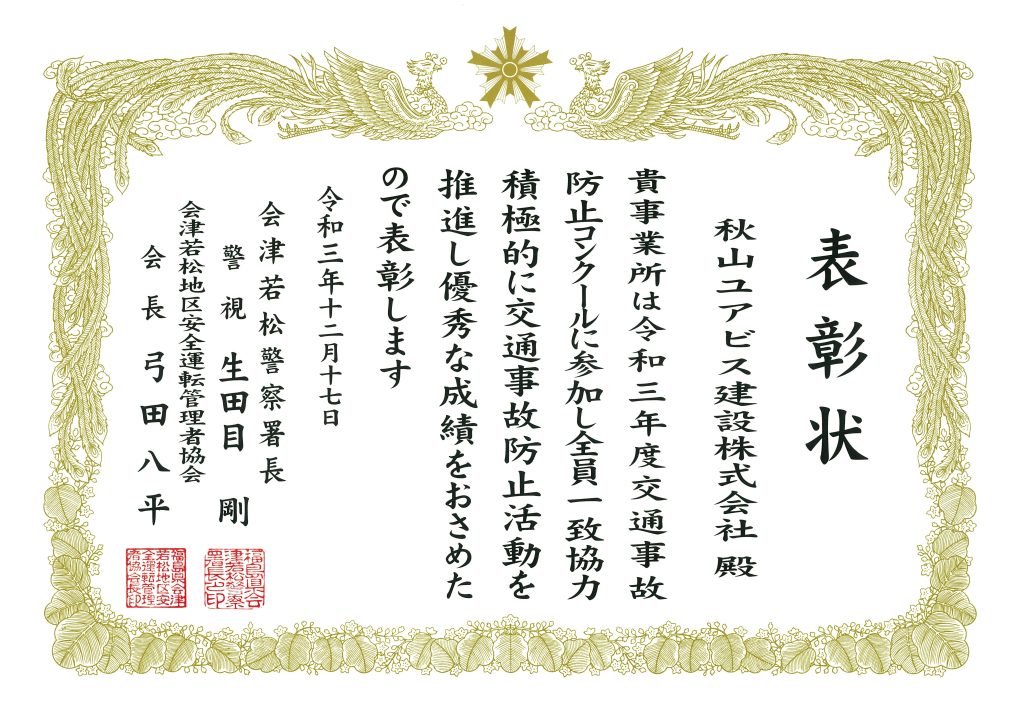 表彰状
秋山ユアビス建設株式会社 殿
貴事業所は令和三年度交通事故
防止コンクールに参加し全員一致協力
積極的に交通事故防止活動を
推進し優秀な成績をおさめた
ので表彰します
令和三年十二月十七日
会津若松警察署長
警視 生田目 剛
会津若松地区安全運転管理者協会
会長 弓田八平
福島県会
津若松警察
署長之印
福島県会津
若松地区安
全運転管理
者協会長印